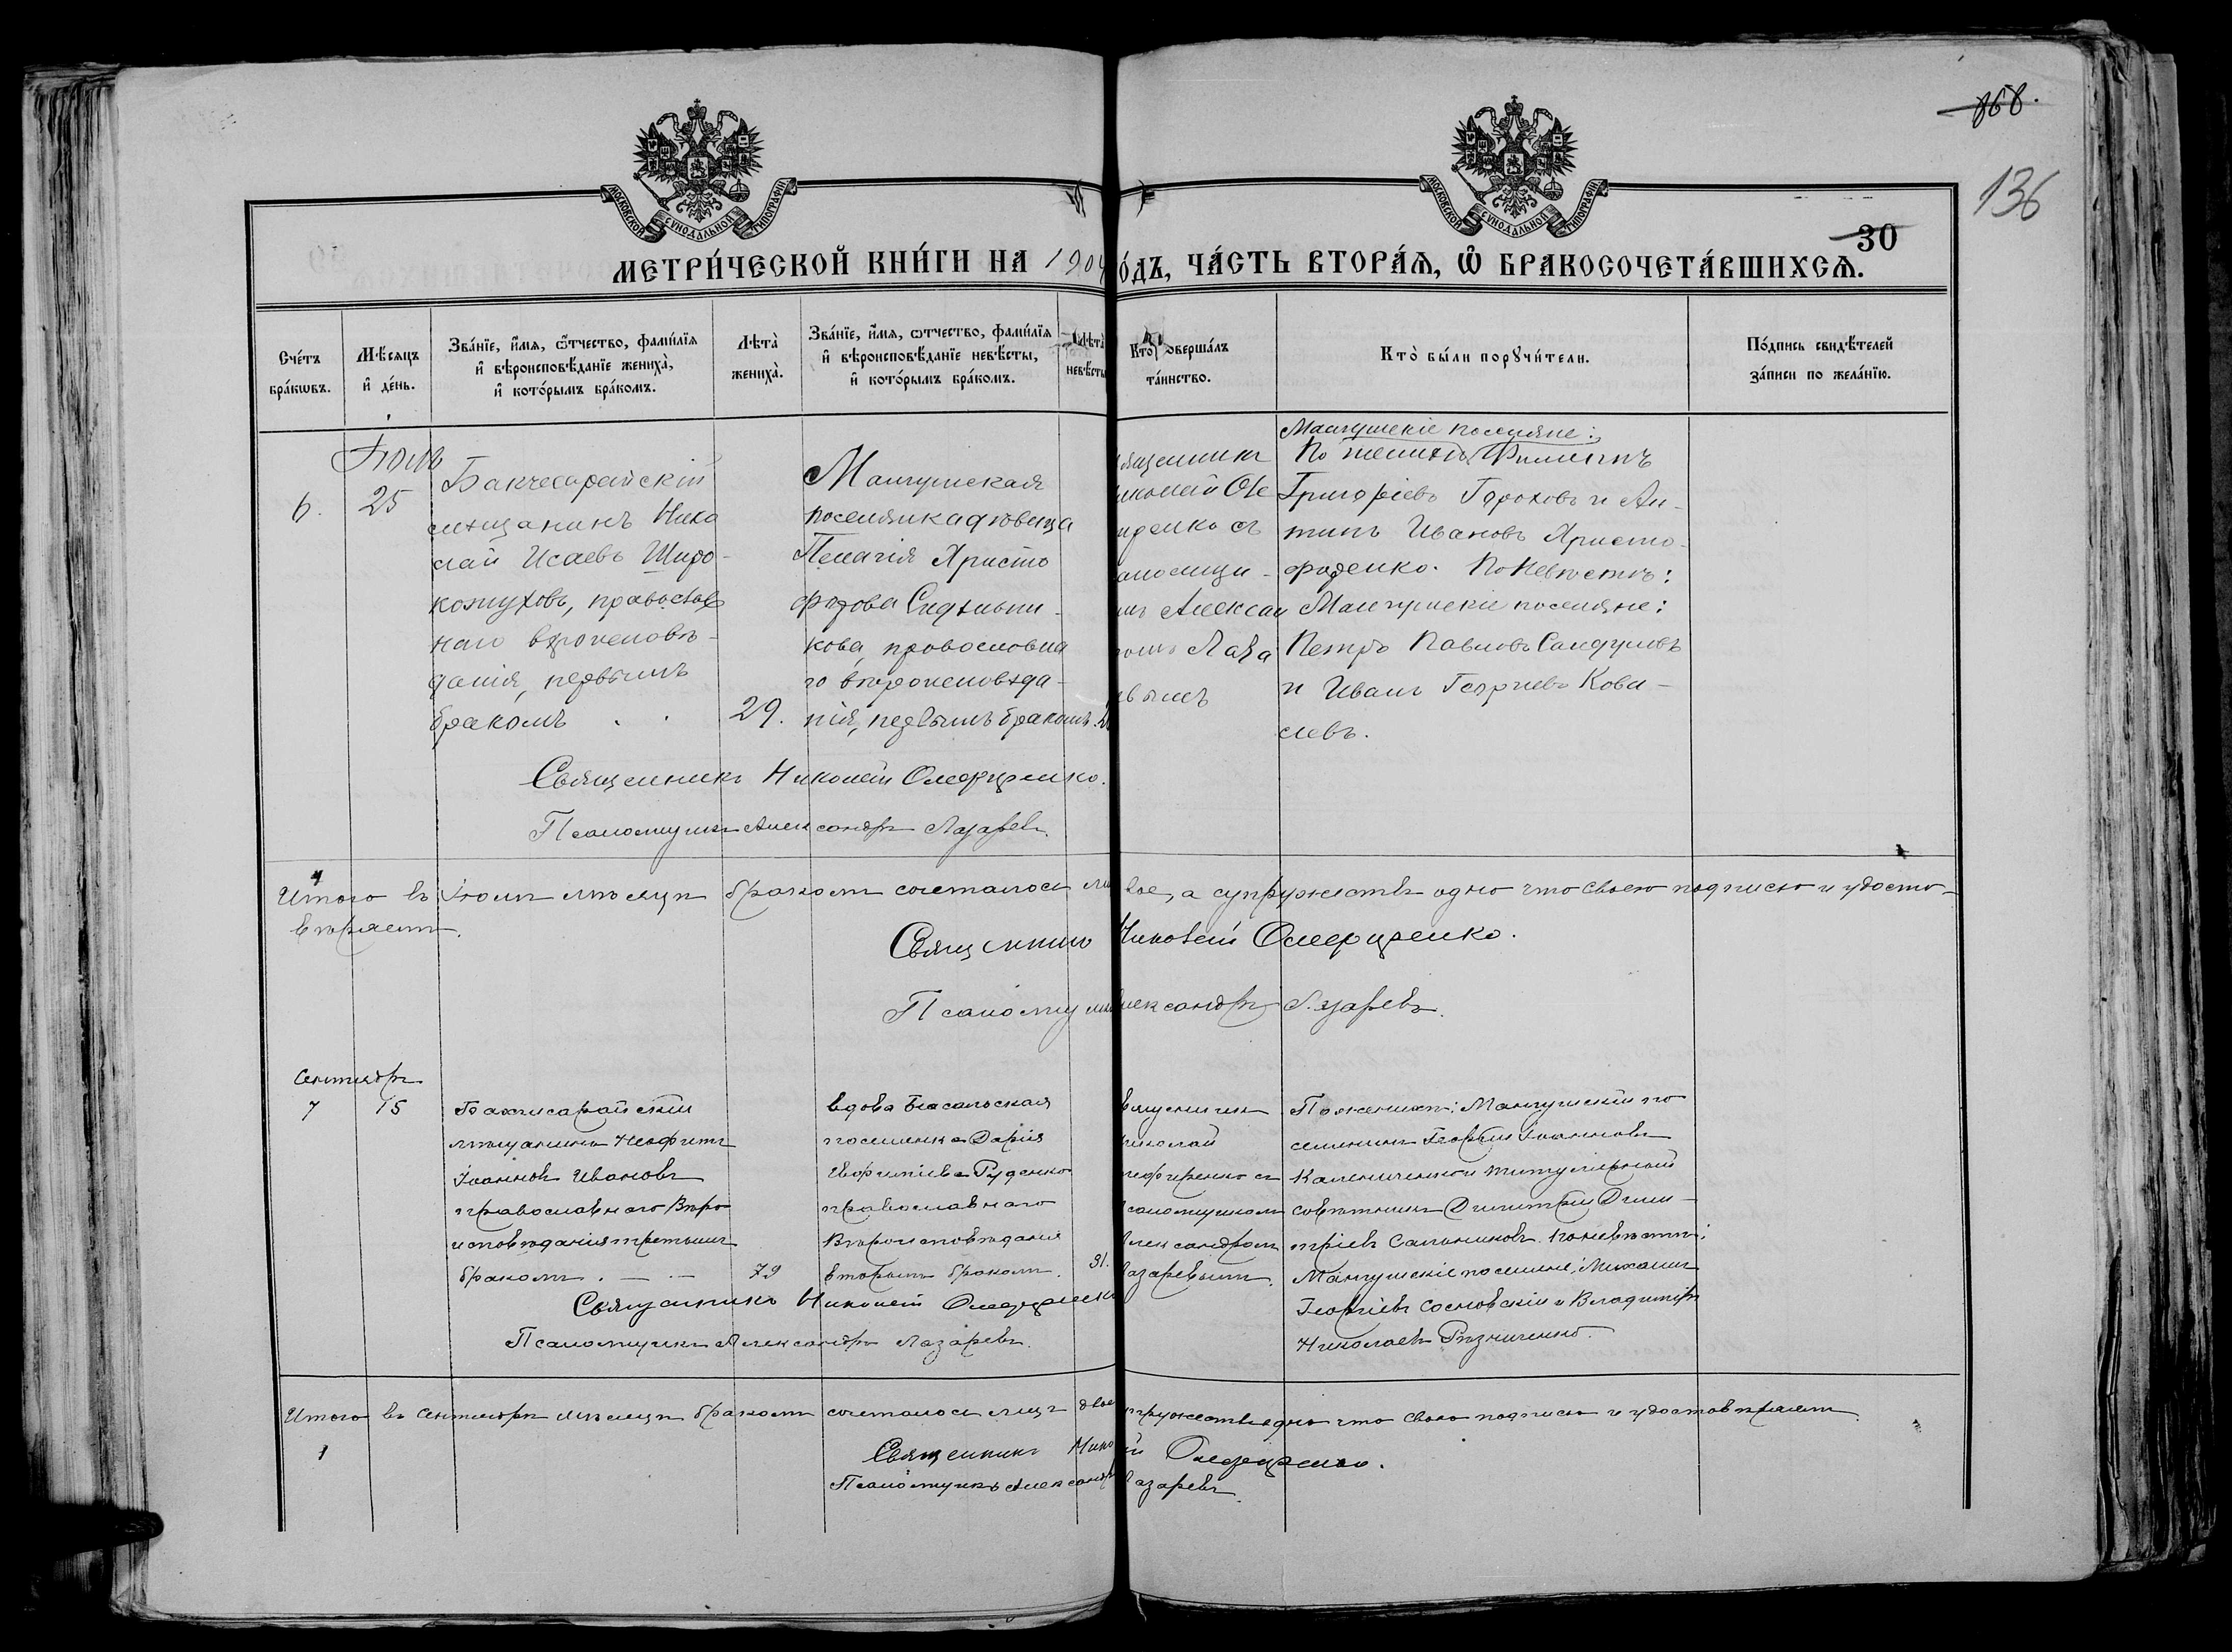 868.
136
30
МОСКОВСКОЙ СУНОДАЛЬНОЙ ТИПОГРАФІИ
МОСКОВСКОЙ СУНОДАЛЬНОЙ ТИПОГРАФІИ
МЕТРИ́ЧЕСКОЙ КНИ́ГИ НА 1904 О́ДЪ, ЧА́СТЬ ВТОРА́Ѧ, Ѽ БРАКОСОЧЕТА́ВШИХСѦ.
Сче́тъ бра́кѡвъ.
Мѣ́сяцъ и҆ де́нь.
Зва́нїе, и҆́мя, ѻ҆́тчество, фами́лїя и҆ вѣроисповѣ́данїе жениха̀, и҆ кото́рымъ бра́комъ.
Лѣта̀ жениха̀.
Зва́нїе, и҆́мя, ѻ҆́тчество, фами́лїя и҆ вѣроисповѣ́данїе невѣ́сты, и҆ кото́рымъ бра́комъ.
Лѣта̀ невѣ́сты
Кто̀ соверша́лъ та́инство.
Кто̀ бы́ли порꙋчи́тели.
По́дпись свидѣ́телей за́писи по жела́нїю.
6.
Іюль
25
Бакчесарайскій
мѣщанинъ Нико
лай Исаевъ Широ-
кожуховъ, православ
наго вѣроисповѣ-
данія, первымъ
бракомъ
29.
Мангушская
поселянка дѣвица
Пелагія Христо
форова
кова, православна
го вѣроисповѣда-
нія, первымъ бракомъ.
ященникъ
иколай Оле
иренко съ
аломщи-
мъ Алексан
омъ Лаза
вымъ
Мангушскіе поселяне:
По женихѣ, Филиппъ
Григоріевъ Гороховъ и Ан-
типъ Ивановъ Христо-
форенко. По Невѣстѣ:
Мангушскіе поселяне:
Петръ Павловъ Сандуловъ
и Иванъ Георгіевъ Кова-
левъ.
Священникъ Николай Олефиренко.
Псаломщикъ Александръ Лазаревъ.
Итого въ Іюлѣ мѣсяцѣ бракомъ сочеталось ли вое, а супружествъ одно что своею подписью и удосто-
вѣряемъ.
Священникъ Николай Олефиренко.
Псаломщикъ Александръ Лазаревъ.
Сентябрь
7
15
Бахчисарайскій
мѣщанинъ Неофитъ
Іоанновъ Ивановъ
православнаго Вѣро
исповѣданія третьимъ
бракомъ.
79
вдова Біасальская
поселянка Дарія
Руденко
православнаго
Вѣроисповѣданія
вторымъ бракомъ.
31.
вященникъ
иколай
лефиренко съ
саломщикомъ
лександромъ
Лазаревымъ.
По женихѣ: Мангушскій по
селянинъ Георгій Іоанновъ
Калениченко и титулярный
совѣтникъ Димитрій Дими-
тріевъ Сальниковъ. По невѣстѣ:
Мангушскіе поселяне: Михаилъ
Георгіевъ Сосновскій и Владиміръ
Николаевъ Рѣзниченко.
Священникъ Николай Олефиренко
Псаломщикъ Александръ Лазаревъ.
Итого въ Сентябрѣ мѣсяцѣ бракомъ сочеталось лицъ двое упружествъ одно что свою подписью и удостовѣряемъ.
Священникъ Нико й Олефиренко.
Псаломщикъ Александръ Лазаревъ.